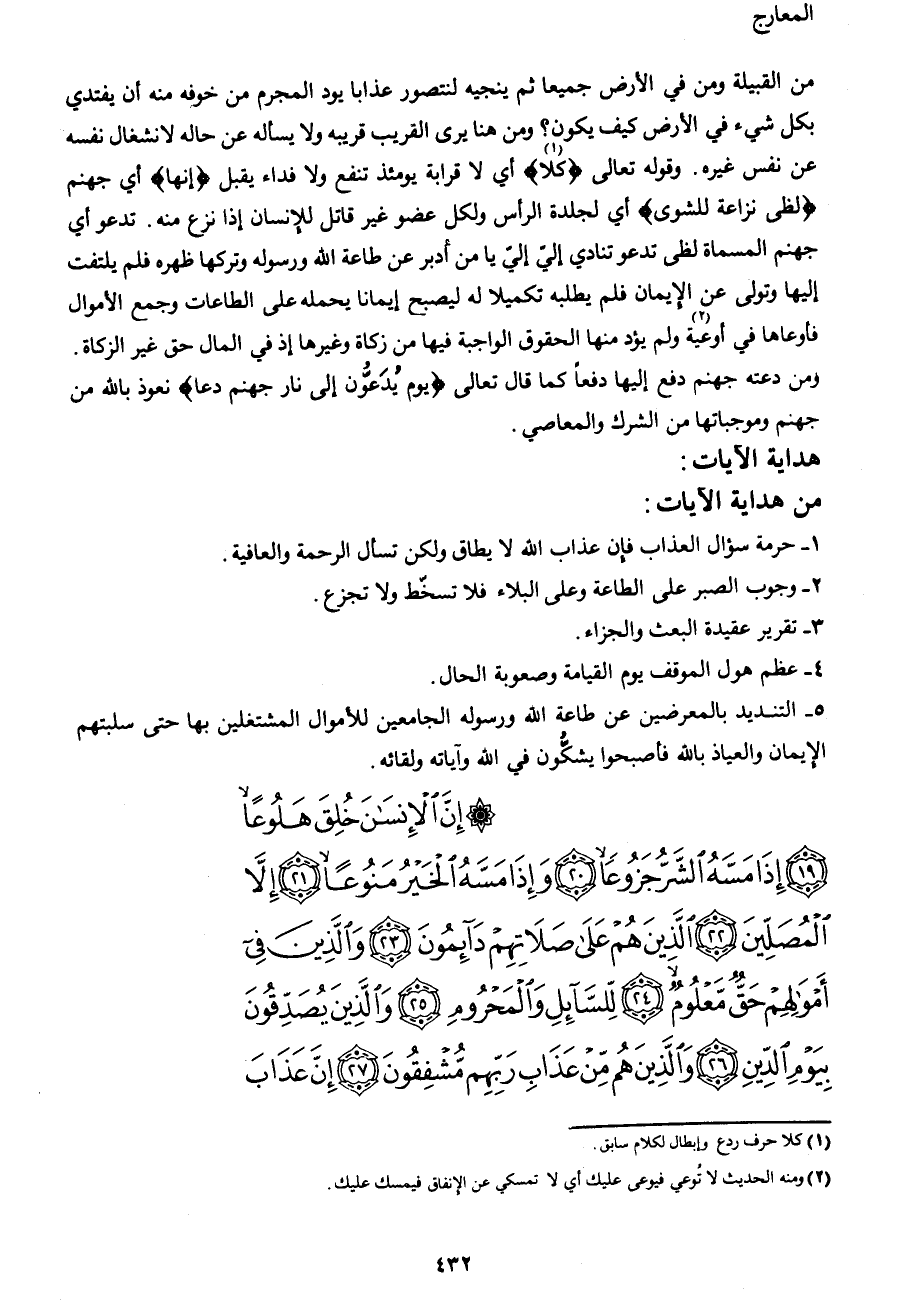 المعارج
من القبيلة ومن في الأرض جميعا ثم ينجيه لنتصور عذابا يود المجرم من خوفه منه أن يفتدي
بكل شيء في الأرض كيف يكون؟ ومن هنا يرى القريب قريبه ولا يسأله عن حاله لانشغال نفسه
عن نفس غيره. وقوله تعالى ﴿كلا﴾(١) أي لا قرابة يومئذ تنفع ولا فداء يقبل ﴿إنها﴾ أي جهنم
﴿لظى نزاعة للشوى﴾ أي لجلدة الرأس ولكل عضو غير قاتل للإنسان إذا نزع منه. تدعو أي
جهنم المسماة لظى تدعو تنادي إليّ إليّ يا من أدبر عن طاعة الله ورسوله وتركها ظهره فلم يلتفت
إليها وتولى عن الإيمان فلم يطلبه تكميلا له ليصبح إيمانا يحمله على الطاعات وجمع الأموال
فأوعاها في أوعية(٢) ولم يؤد منها الحقوق الواجبة فيها من زكاة وغيرها إذ في المال حق غير الزكاة.
ومن دعته جهنم دفع إليها دفعاً كما قال تعالى ﴿يوم يُدَعُّون إلى نار جهنم دعا﴾ نعوذ بالله من
جهنم وموجباتها من الشرك والمعاصي.
هداية الآيات:
من هداية الآيات:
١- حرمة سؤال العذاب فإن عذاب الله لا يطاق ولكن تسأل الرحمة والعافية.
٢- وجوب الصبر على الطاعة وعلى البلاء فلا تسخّط ولا تجزع.
٣- تقرير عقيدة البعث والجزاء.
٤- عظم هول الموقف يوم القيامة وصعوبة الحال.
٥- التنديد بالمعرضين عن طاعة الله ورسوله الجامعين للأموال المشتغلين بها حتى سلبتهم
الإيمان والعياذ بالله فأصبحوا يشكُّون في الله وآياته ولقائه.
۞ إِنَّ ٱلْإِنسَٰنَ خُلِقَ هَلُوعًا
﴿١٩﴾ إِذَا مَسَّهُ ٱلشَّرُّ جَزُوعًا ﴿٢٠﴾ وَإِذَا مَسَّهُ ٱلْخَيْرُ مَنُوعًا ﴿٢١﴾ إِلَّا
ٱلْمُصَلِّينَ ﴿٢٢﴾ ٱلَّذِينَ هُمْ عَلَىٰ صَلَاتِهِمْ دَآئِمُونَ ﴿٢٣﴾ وَٱلَّذِينَ فِىٓ
أَمْوَٰلِهِمْ حَقٌّ مَّعْلُومٌ ﴿٢٤﴾ لِّلسَّآئِلِ وَٱلْمَحْرُومِ ﴿٢٥﴾ وَٱلَّذِينَ يُصَدِّقُونَ
بِيَوْمِ ٱلدِّينِ ﴿٢٦﴾ وَٱلَّذِينَ هُم مِّنْ عَذَابِ رَبِّهِم مُّشْفِقُونَ ﴿٢٧﴾ إِنَّ عَذَابَ
(١) كلا حرف ردع وإبطال لكلام سابق.
(٢) ومنه الحديث لا تُوعي فيوعى عليك أي لا تمسكي عن الإنفاق فيمسك عليك.
٤٣٢